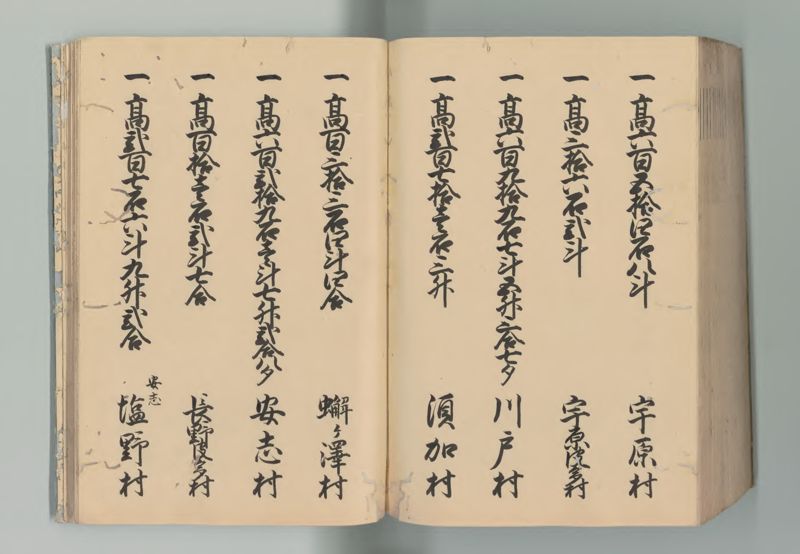 一 高六百五拾四石八斗 宇原村
一 高三拾六石弐斗 宇原 村
一 高六百九拾九石七斗五升三合七夕 川戸村
一 高弐百七拾壱石三升 須加村
一 高百三拾三石四斗四合 蠏ヶ澤村
一 高六百弐拾九石壱斗七升弐合八夕 安志村
一 高百拾壱石弐斗七合 長野 村
一 高弐百七石六斗九升弐合 安志 塩野村